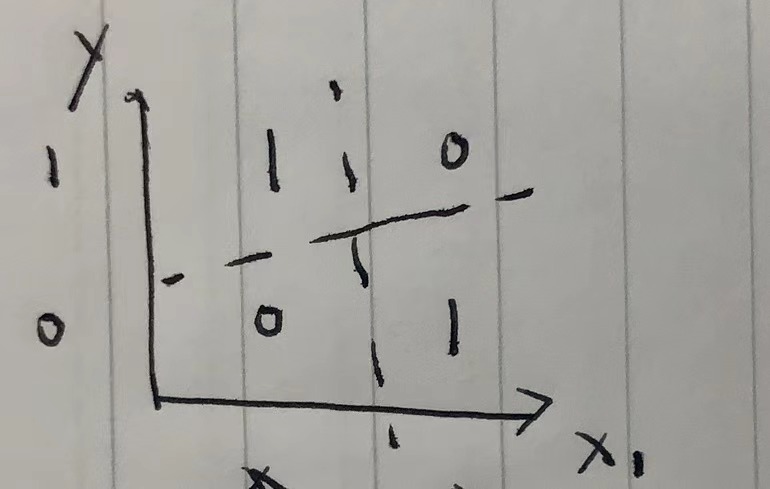 y
1 1 0
0 0 1
x₁